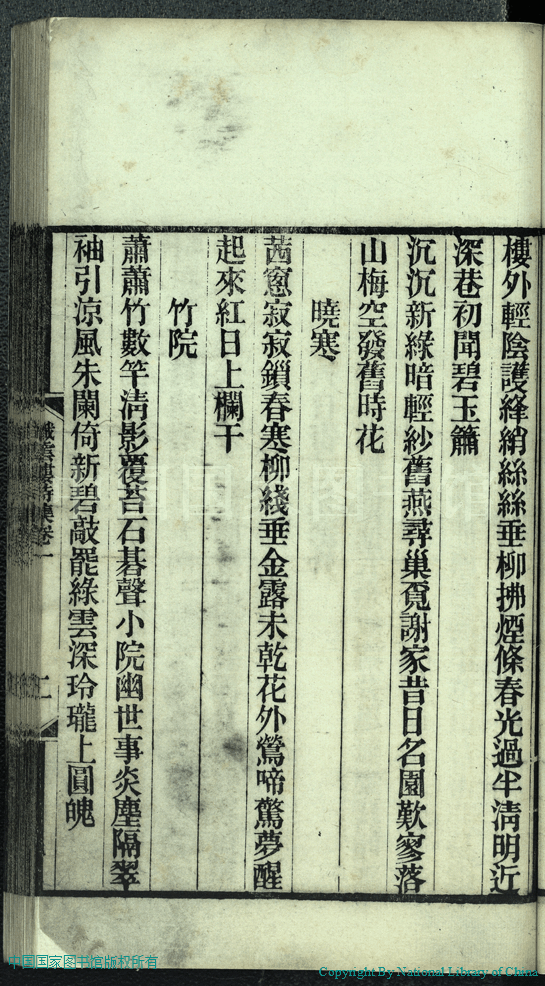 樓外輕陰護絳綃絲絲垂柳拂煙條春光過半清明近
深巷初聞碧玉簫
沉沉新綠暗輕紗舊燕尋巢覓謝家昔日名園歎寥落
山梅空發舊時花
曉寒
茜窻寂寂鎖春寒柳綫垂金露未乾花外鶯啼驚夢醒
起來紅日上欄干
竹院
蕭蕭竹數竿清影覆苔石碁聲小院幽世事炎塵隔翠
袖引涼風朱闌倚新碧敲罷綠雲深玲瓏上圓魄
織雲樓詩集卷一
二
中国国家图书馆
中国国家图书馆版权所有
Copyright By National Library of China